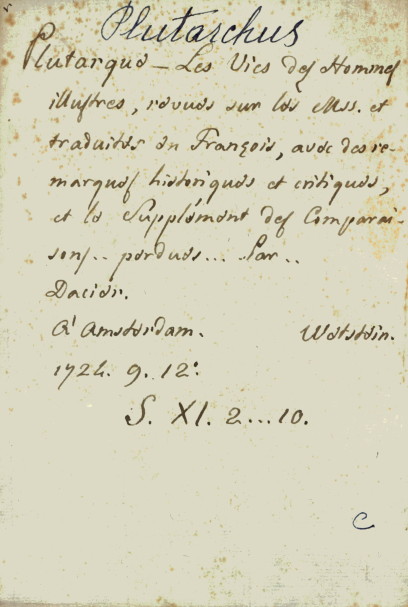 Plutarchus
Plutarque – Les Vies des Hommes
illustres, revues sur les Mss. et
traduites en François, avec des re-
marques historiques et critiques,
et le Supplément des Comparai-
sons.. perdues... Par..
Dacier.
A' Amsterdam. Wetstein.
1724. 9. 12º.
S. XI. 2...10.
C